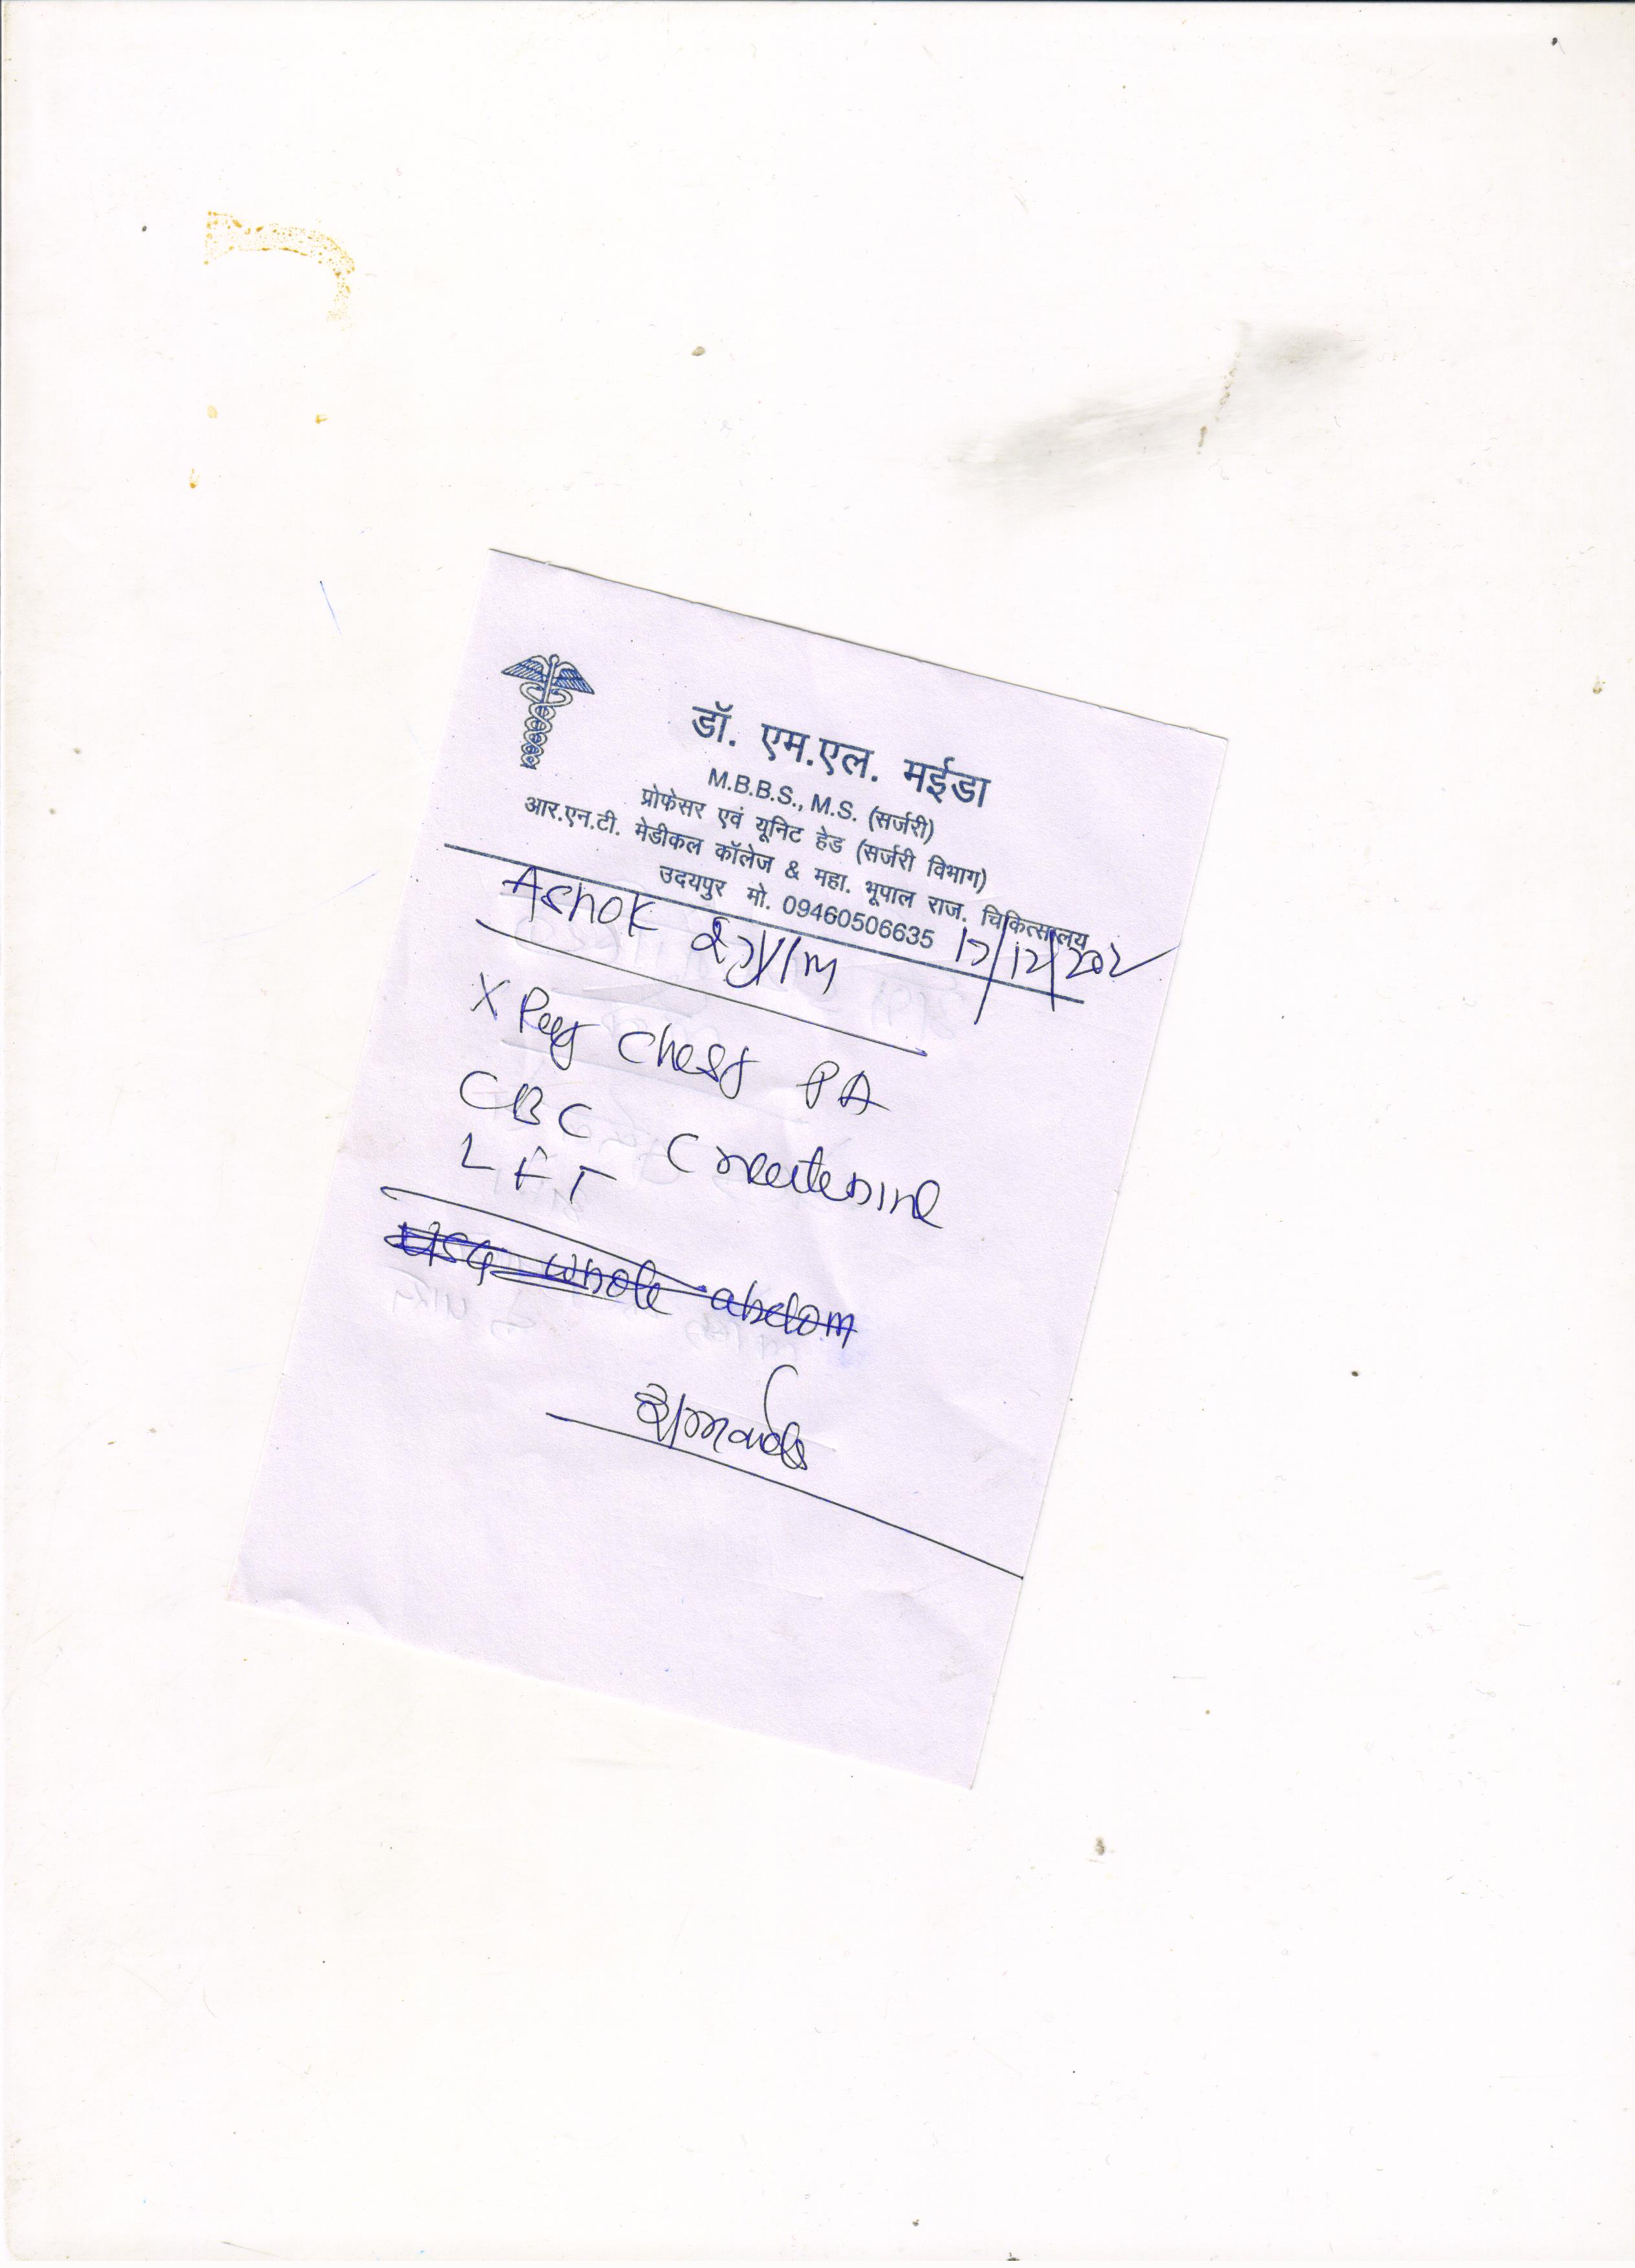 डॉ. एम.एल. मईडा
M.B.B.S., M.S. (सर्जरी)
प्रोफेसर एवं यूनिट हेड (सर्जरी विभाग)
आर.एन.टी. मेडीकल कॉलेज & महा. भूपाल राज. चिकित्सालय
उदयपुर मो. 09460506635
Ashok 17/12/202
X Ray Chest PA
CBC Createnine
LFT
USG whole abdom